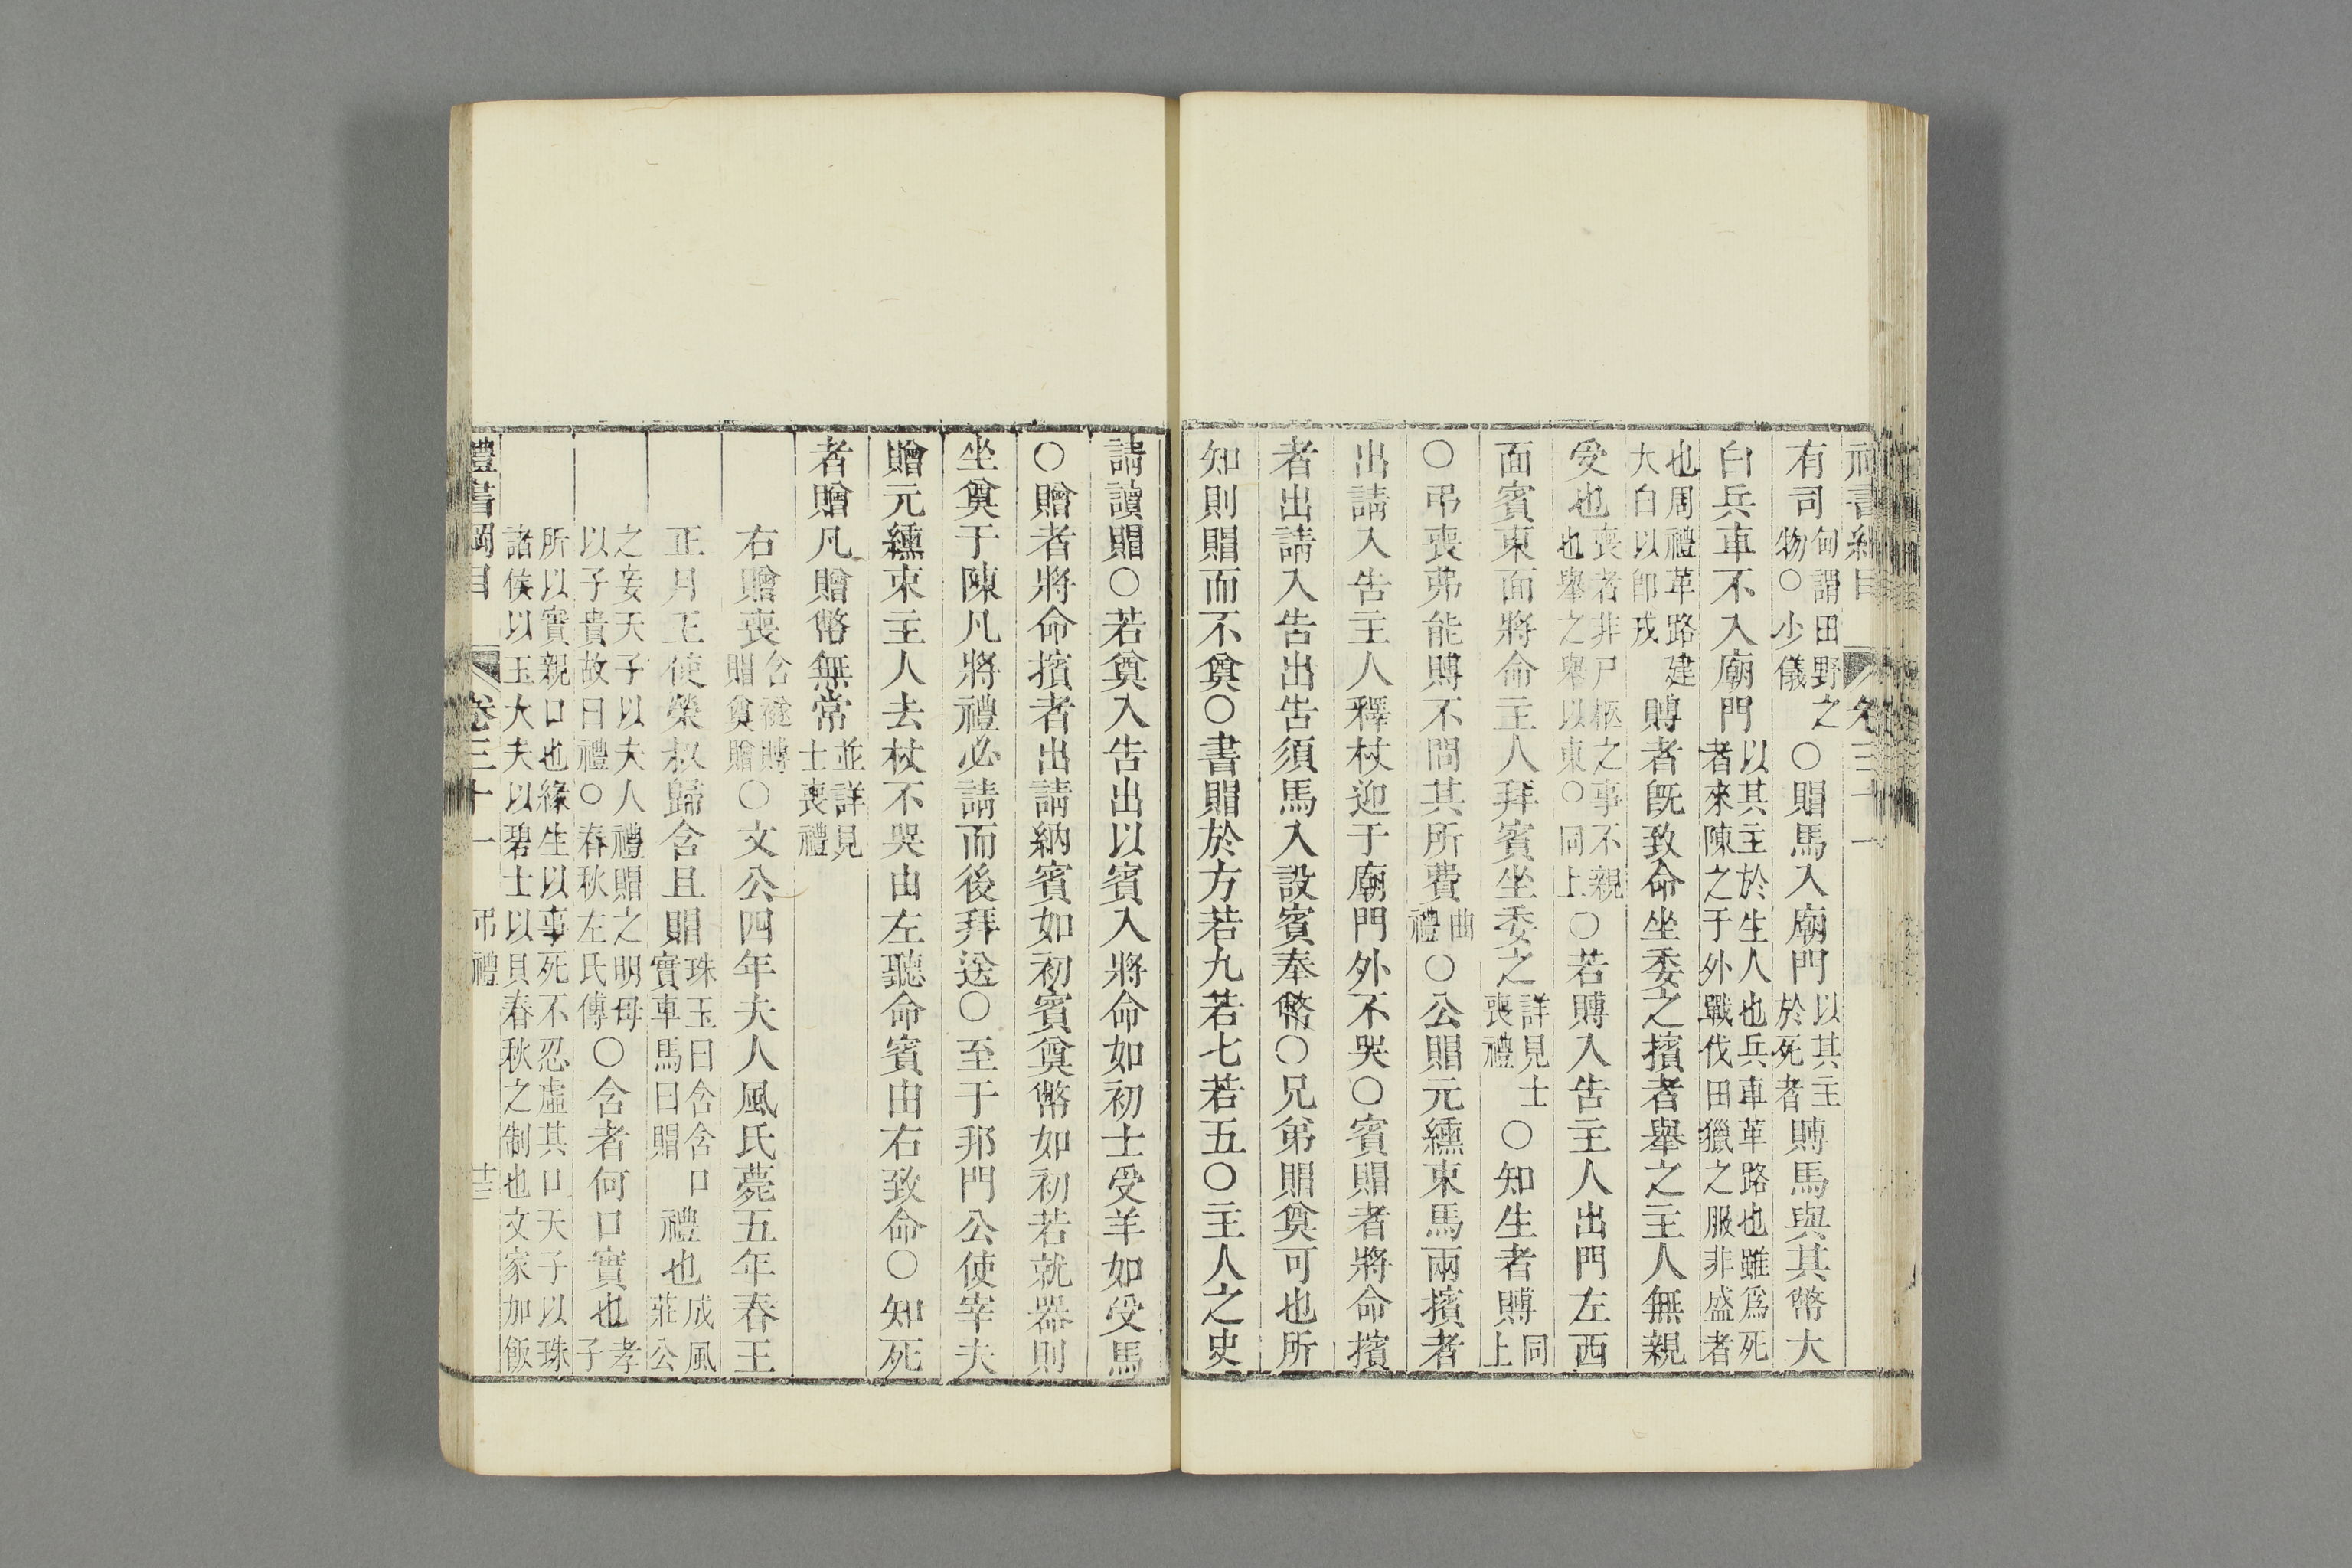 有司甸謂田野之物○少儀○賵馬入廟門以其主於死者賻馬與其幣大
白兵車不入廟門以其主於生人也兵車革路也雖爲死者來陳之于外戰伐田獵之服非盛者
也周禮革路建大白以卽戎賻者旣致命坐委之擯者舉之主人無親
受也喪者非尸柩之事不親也舉之舉以東○同上○若賻入告主人出門左西
面賓東面將命主人拜賓坐委之詳見士喪禮○知生者賻同上
○弔喪弗能賻不問其所費曲禮○公賵元纁束馬兩擯者
出請入告主人釋杖迎于廟門外不哭○賓賵者將命擯
者出請入告出告須馬入設賓奉幣○兄弟賵奠可也所
知則賵而不奠○書賵於方若九若七若五○主人之史
請讀賵○若奠入告出以賓入將命如初士受羊如受馬
○贈者將命擯者出請納賓如初賓奠幣如初若就器則
坐奠于陳凡將禮必請而後拜送○至于邦門公使宰夫
贈元纁束主人去杖不哭由左聽命賓由右致命○知死
者贈凡贈幣無常並詳見士喪禮
右贈喪含襚賻賵奠贈○文公四年夫人風氏薨五年春王
正月王使榮叔歸含且賵珠玉曰含含口實車馬曰賵禮也成風莊公
之妾天子以夫人禮賵之明母以子貴故曰禮○春秋左氏傳○含者何口實也孝子
所以實親口也緣生以事死不忍虛其口天子以珠諸侯以玉大夫以碧士以貝春秋之制也文家加飯
禮書綱目 卷三十一 弔禮 廿三